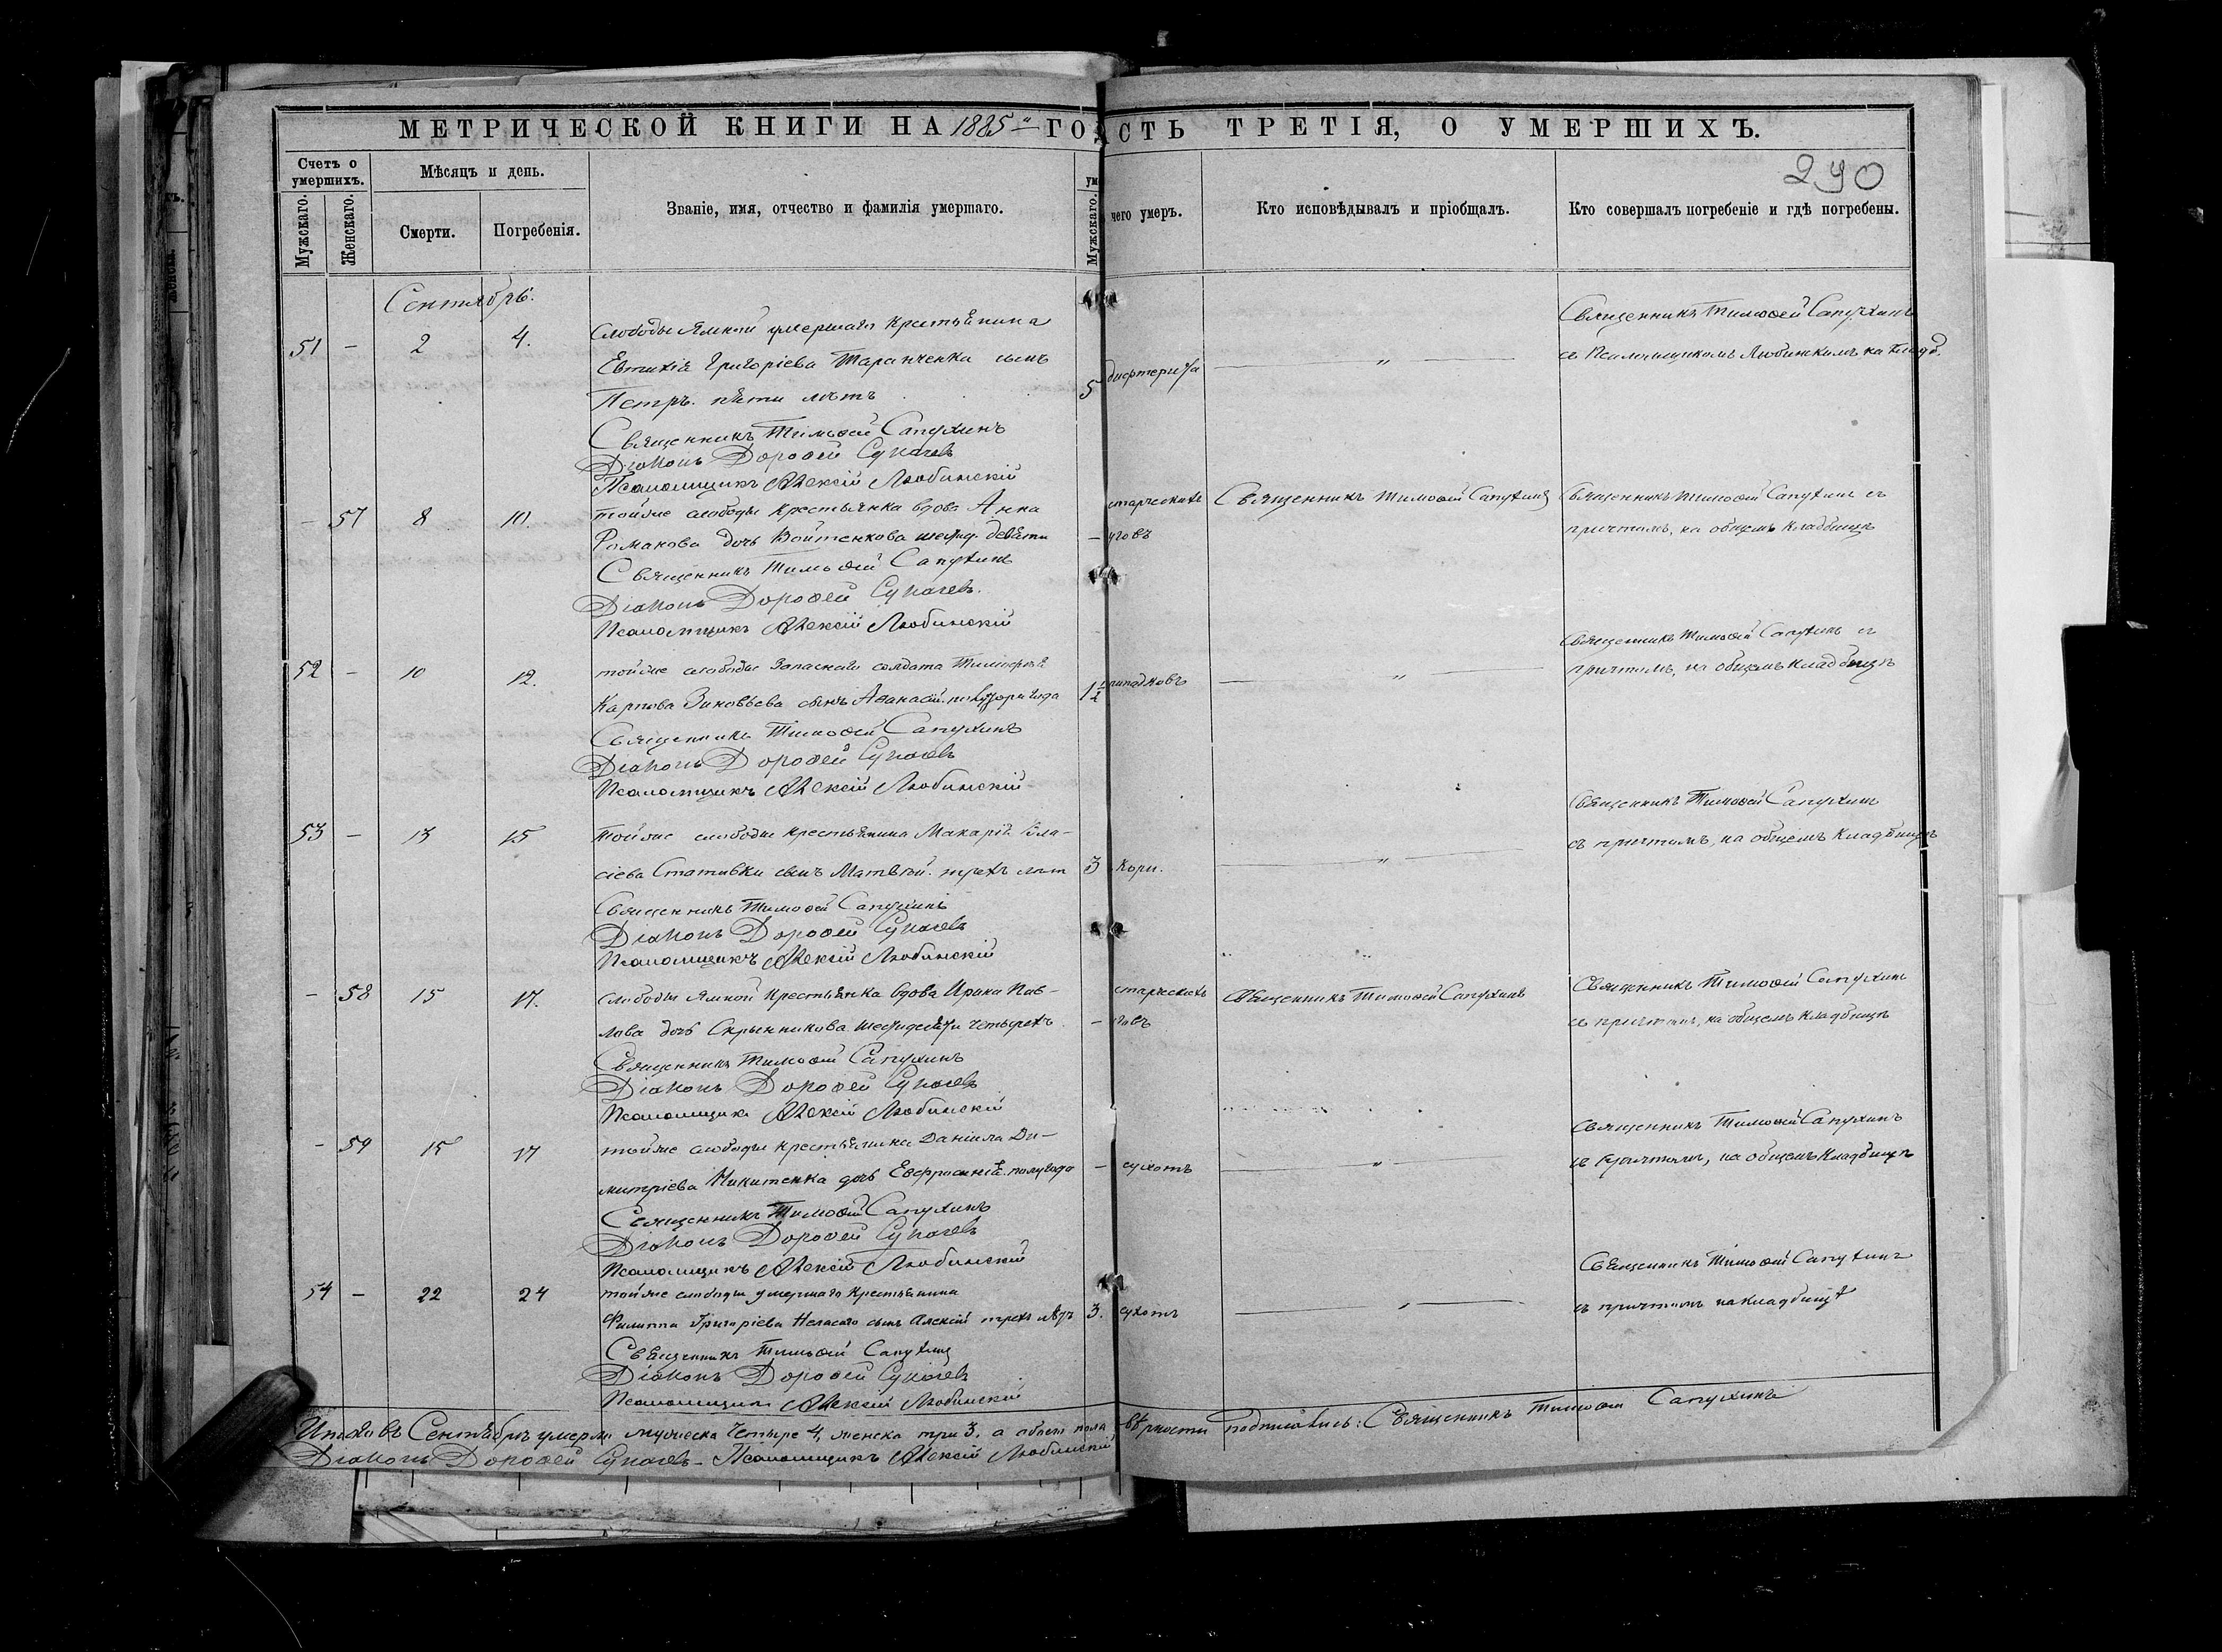 МЕТРИЧЕСКОЙ КНИГИ НА 1885 ГО
СТЬ ТРЕТІЯ, О УМЕРШИХЪ.
290
Счетъ о умершихъ.
Мужскаго.
Женскаго.
Мѣсяцъ и день.
Смерти.
Погребенія.
Званіе, имя, отчество и фамилія умершаго.
ум
Мужскаго.
чего умеръ.
Кто исповѣдывалъ и пріобщалъ.
Кто совершалъ погребеніе и гдѣ погребены.
Сентябрь.
51 - 2 4. Слободы Ямной умершаго крестьянина
Евтихія Григоріева Таранченка сынъ
Петръ. пяти лѣтъ 5 дифтерита "
Священникъ Тимоѳей Сапухинъ
съ Псаломщикомъ Любинскимъ на кладб.
Священникъ Тимоѳей Сапухинъ
Діаконъ Дороѳей
Псаломщикъ Алексій Любинскій
- 57 8 10. тойже слободы крестьянка вдова Анна
Романова дочь Войтенкова шестид. девяти -
старческихъ
Священникъ Тимоѳей Сапухинъ
Священникъ Тимоѳей Сапухинъ съ
причтомъ, на общемъ кладбищѣ
Священникъ Тимоѳей Сапухинъ
Діаконъ Дороѳей
Псаломщикъ Алексій Любинскій
52 - 10 12. тойже слободы запаснаго солдата
Карпова Зиновьева сынъ Аѳанасій. полутора года 1½ "
Священникъ Тимоѳей Сапухинъ съ
причтомъ, на общемъ кладбищѣ
Священникъ Тимоѳей Сапухинъ
Діаконъ Дороѳей
Псаломщикъ Алексій Любинскій
53 - 13 15 тойже слободы крестьянина Макарія Вла-
сіева Стативки сынъ Матвѣй. трехъ лѣт 3 Кори. "
Священникъ Тимоѳей Сапухинъ
съ причтомъ, на общемъ кладбищѣ
Священникъ Тимоѳей Сапухинъ
Діаконъ Дороѳей
Псаломщикъ Алексій Любинскій
- 58 15 17. слободы Ямной крестьянка вдова Ирина Пав-
лова дочь Скрынникова шестидесяти четырехъ -
старческихъ
Священникъ Тимоѳей Сапухинъ
Священникъ Тимоѳей Сапухинъ
съ причтомъ, на общемъ кладбищѣ
Священникъ Тимоѳей Сапухинъ
Діаконъ Дороѳей
Псаломщикъ Алексій Любинскій
- 59 15 17 тойже слободы крестьянина Даніила Ди-
митріева Никитенка дочь Евфросинія полугода - сухотъ "
Священникъ Тимоѳей Сапухинъ
съ причтомъ, на общемъ кладбищѣ
Священникъ Тимоѳей Сапухинъ
Діаконъ Дороѳей
Псаломщикъ Алексій Любинскій
54 - 22 24 тойже слободы умершаго крестьянина
Филиппа Григоріева сынъ Алексій трехъ лѣтъ 3. сухотъ "
Священникъ Тимоѳей Сапухинъ
съ причтомъ на кладбищѣ
Священникъ Тимоѳей Сапухинъ
Діаконъ Дороѳей
Псаломщикъ Алексій Любинскій
Итого въ Сентябрѣ умерло мужеска четыре 4, женска три 3, а обоего пола
вѣрности подписались: Священникъ Тимоѳей Сапухинъ
Діаконъ Дороѳей Псаломщикъ Алексій Любинскій